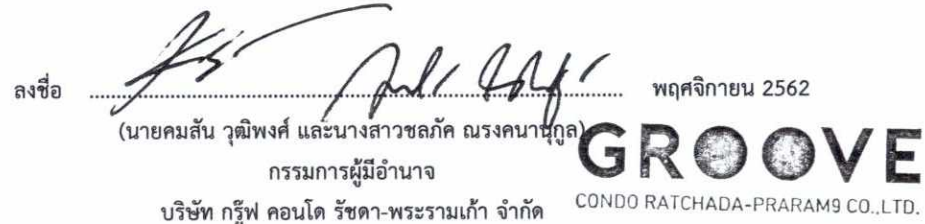 ลงชื่อ ........................................................................ พฤศจิกายน 2562
(นายคมสัน วุฒิพงศ์ และนางสาวชลภัค ณรงคนานุกูล)
กรรมการผู้มีอำนาจ
บริษัท กรู๊ฟ คอนโด รัชดา-พระรามเก้า จำกัด
GROOVE
CONDO RATCHADA-PRARAM9 CO.,LTD.